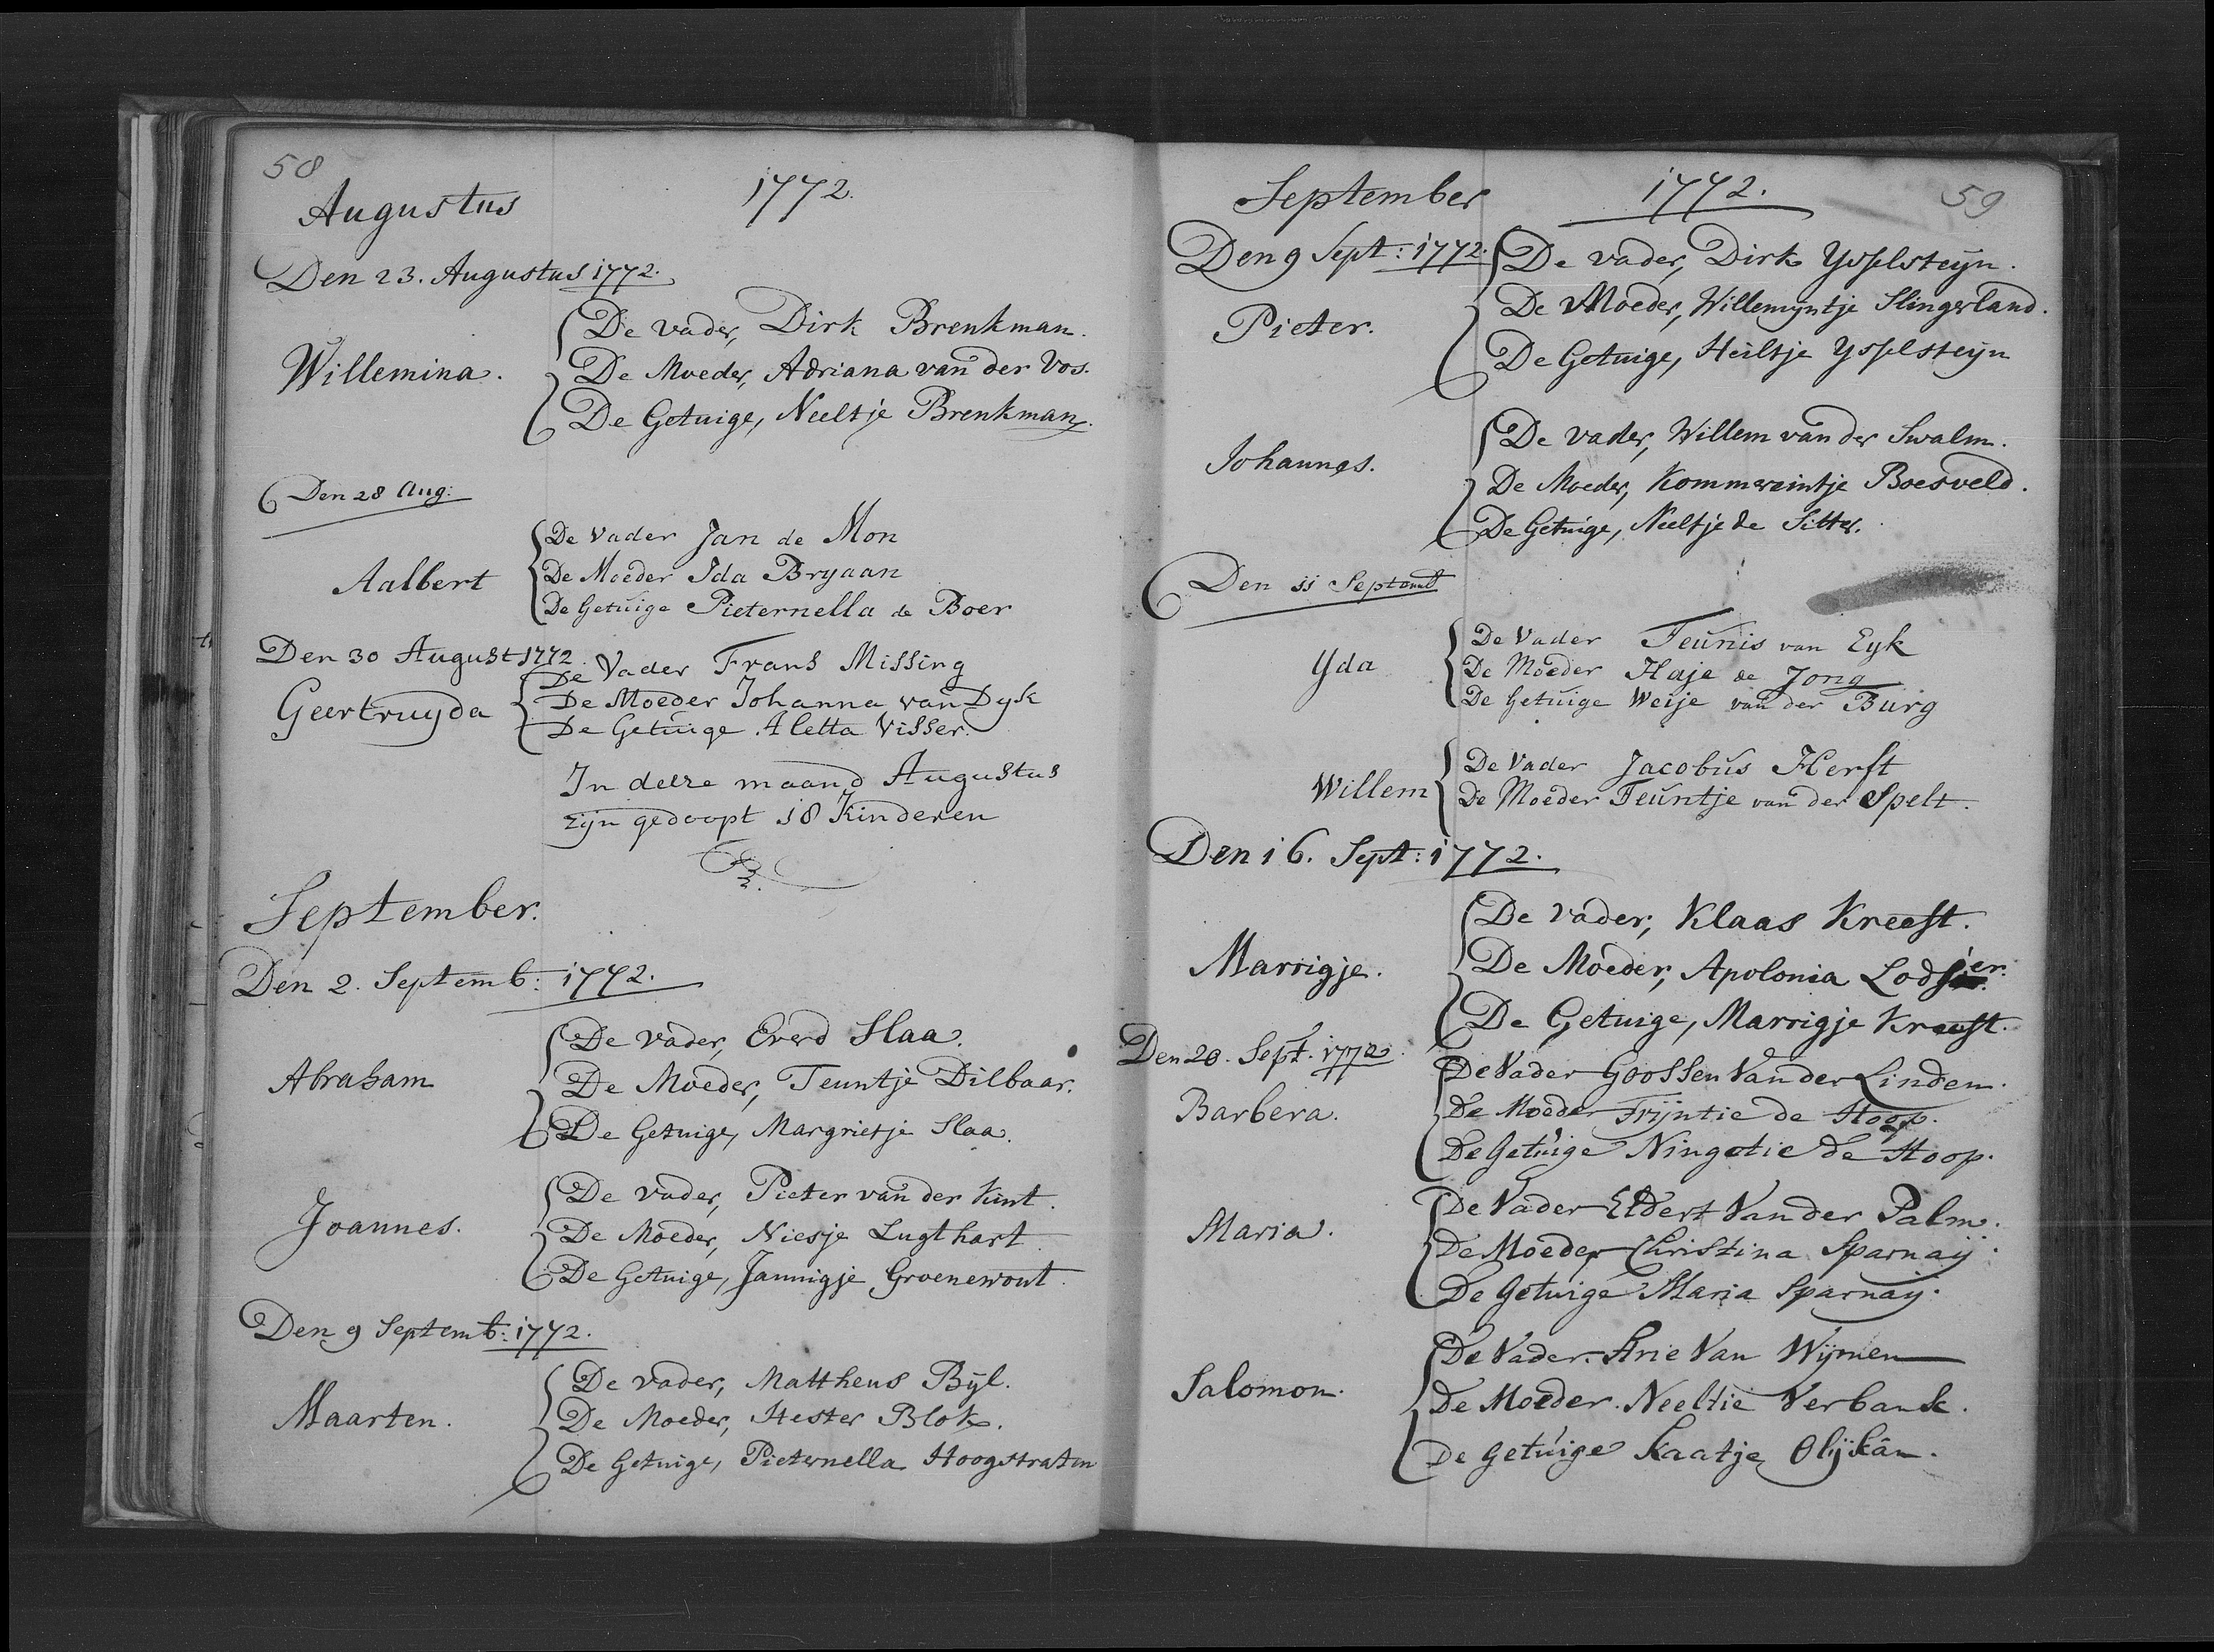 58
Augustus 1772.
Den 23. Augustus 1772.
De vader, Dirk Brenkman.
Willemina. De Moeder, Adriana van der Vos.
De Getuige, Neeltje Brenkman.
Den 28 Aug:
De Vader Jan de Mon
Aalbert De Moeder Ida Bryaan
De Getuige Pieternella de Boer
Den 30 August 1772.
De Vader Frans Missing
Geertruyda De Moeder Johanna van Dyk
De Getuige Aletta Visser.
In deze maand Augustus
zijn gedoopt 18 Kinderen
September.
Den 2. Septemb: 1772.
De vader, Everd Slaa.
Abraham De Moeder, Teuntje Dilbaar.
De Getuige, Margrietje Slaa.
De vader, Pieter van der Kint.
Joannes. De Moeder, Niesje Lugthart.
De Getuige, Jannigje Groenewout.
Den 9 Septemb: 1772.
De vader, Mattheus Byl.
Maarten. De Moeder, Hester Blok.
De Getuige, Pieternella Hoogstraten
September 1772. 59
Den 9 Sept: 1772. De vader, Dirk Ysselsteyn.
Pieter. De Moeder, Willemyntje Slingerland.
De Getuige, Heiltje Ysselsteyn
De vader, Willem van der Swalm.
Johannes. De Moeder, Kommerintje Boesveld.
De Getuige, Neeltje de Sitter.
Den 11 Septemb
De Vader Teunis van Eyk
Yda De Moeder Haje de Jong
De Getuige Weije van der Burg
De Vader Jacobus Herft
Willem De Moeder Teuntje van der Spelt.
Den 16. Sept: 1772.
De vader, Klaas Kreeft.
Marrigje. De Moeder, Apolonia Lodsier.
De Getuige, Marrigje Kreeft.
Den 20. Sept. 1772.
De Vader Goossen Van der Linden.
Barbera. De Moeder Trijntie de Hoop.
De Getuige Ningetie de Hoop.
De Vader Eldert Van der Palm.
Maria. De Moeder Christina Sparnaij.
De Getuige Maria Sparnaij.
De Vader. Arie Van Wijnen
Salomon. De Moeder. Neeltie Verbank.
De Getuige Kaatje Olijkan.